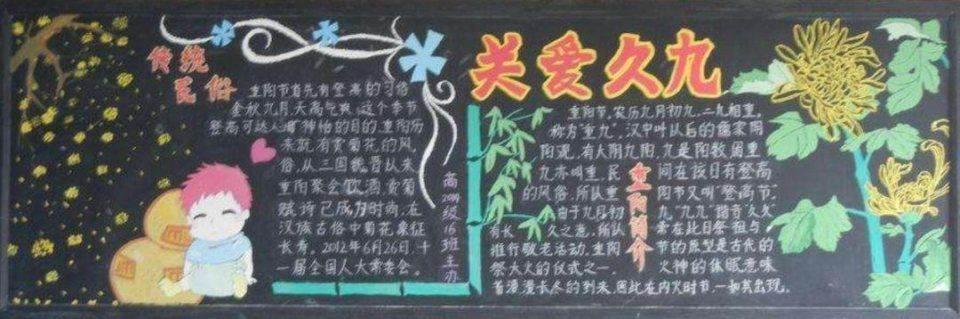 传统
民俗
重阳节首先有登高的习俗
金秋九月,天高气爽,这个季节
登高可达人旷神怡的目的,重阳历
来就有赏菊花的风
俗,从三国魏晋以来
重阳聚会饮酒,赏菊
赋诗已成为时尚,在
汉族古俗中菊花象征
长寿。2012年6月26日,十
一届全国人大常委会。
高
级
16
班
主
办
关爱久九
重阳节,农历九月初九,二九相重,
称为“重九”,汉中叶以后的儒家阴
阳观,有六阴九阳,九是阳数,固重
九亦叫重 民间在该日有登高
的风俗,所以重 阳节又叫“登高节”
由于九月初 九“九九”谐音久久
有长 久之意,所以 常在此日祭祖与
推行敬老活动。重阳 节的原型是古代的
祭大火的仪式之一 火神的休眠意味
着漫漫长冬的到来,因此在内火时节,一如其出现,
重阳简介